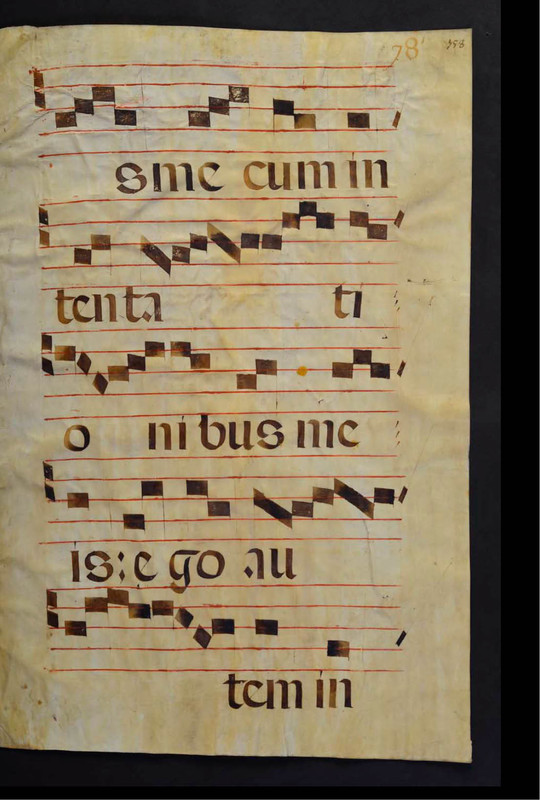 78 158
sme cum in
tenta ti
o ni bus me
is: e go au
tem in